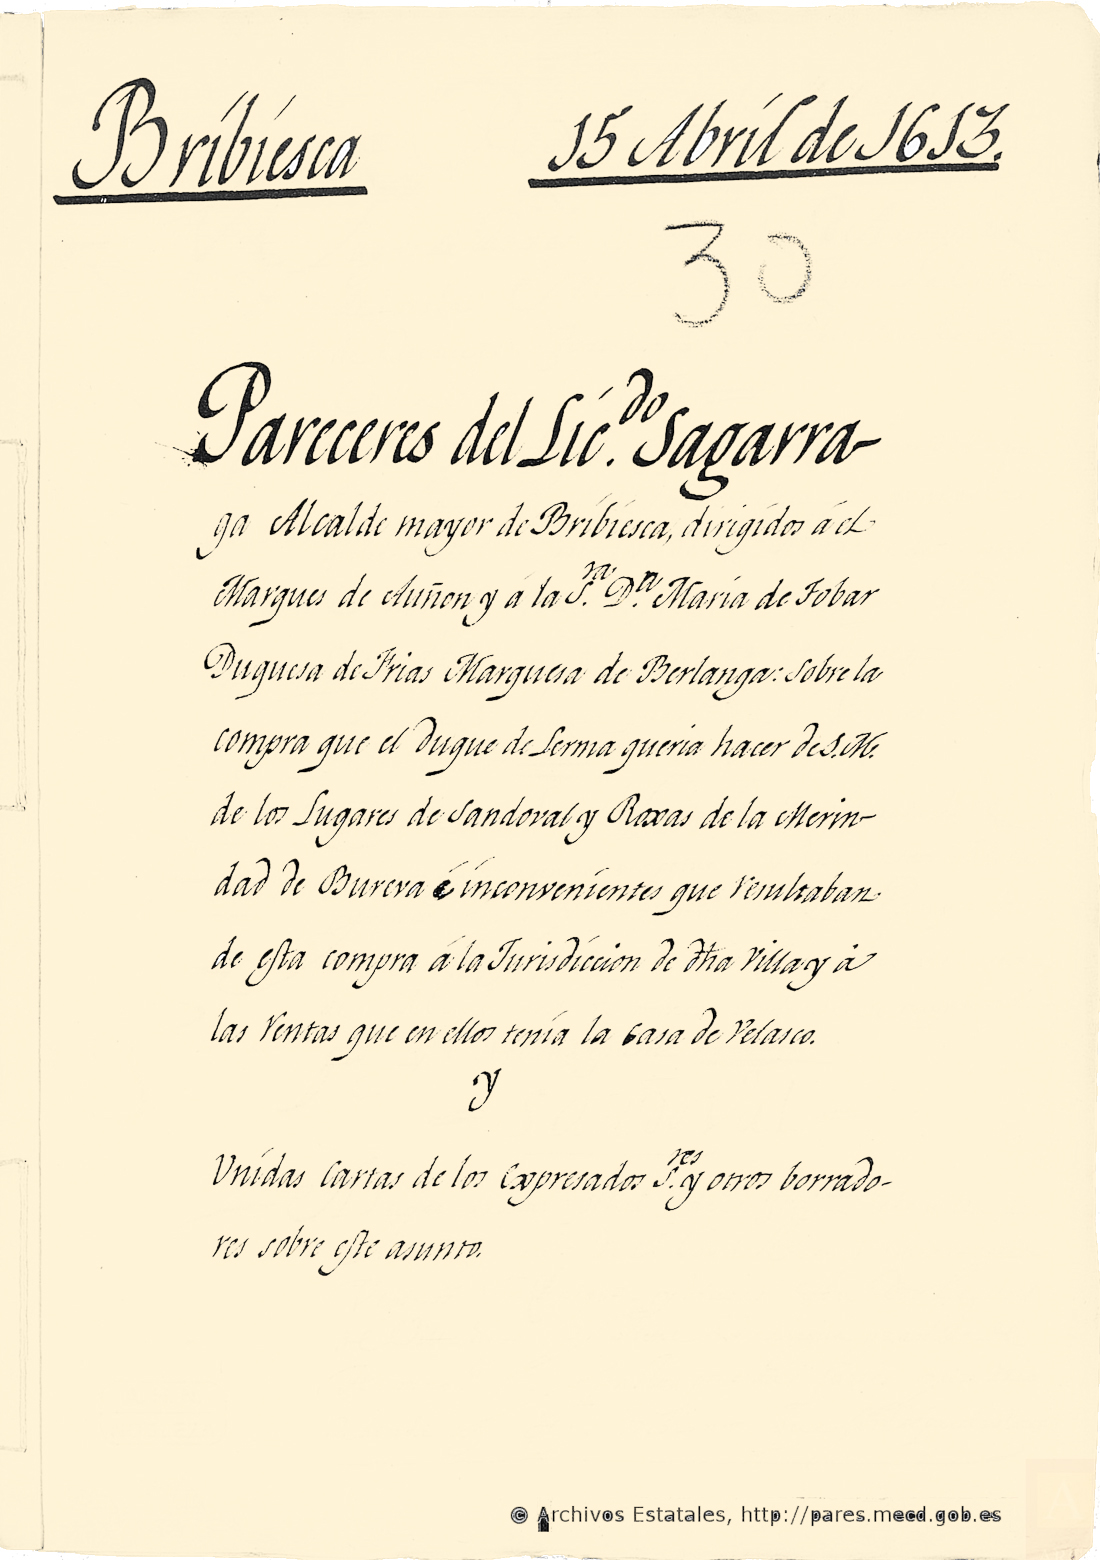 Bribiesca 15 Abril de 1613.
30
Pareceres del Lic.do Sagarra-
ga Alcalde mayor de Bribiesca, dirigidos á el
Marques de Auñon y á la S.ra D.ª Maria de Tobar
Duquesa de Frias Marquesa de Berlanga: sobre la
compra que el Duque de Lerma queria hacer de S.M.
de los Lugares de Sandoval y Roxas de la Merin-
dad de Bureva é inconvenientes que resultaban
de esta compra á la Jurisdiccion de dha Villa y á
las Ventas que en ellos tenia la Casa de Velasco.
y
Unidas Cartas de los Expresados S.res y otros borrado-
res sobre este asunto.
© Archivos Estatales, http://pares.mecd.gob.es